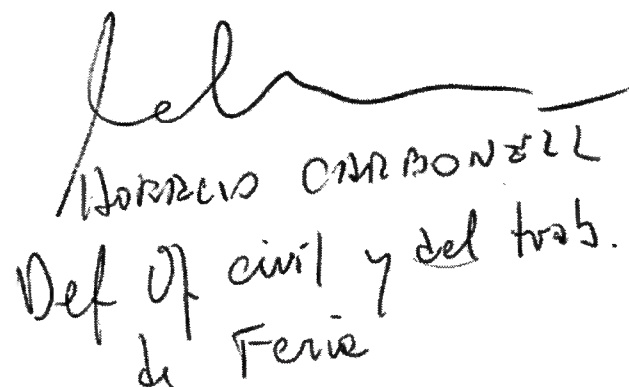 HORACIO CARBONELL
Def Of civil y del trab.
de Feria